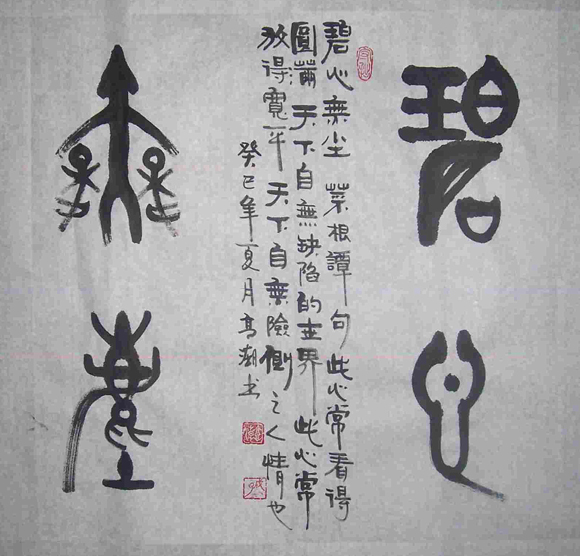 碧心
無塵
碧心無尘 菜根譚句 此心常看得
圓滿 天下自無缺陷的世界 此心常
放得寬平 天下自無險側之人情也
癸巳年夏月高潮书